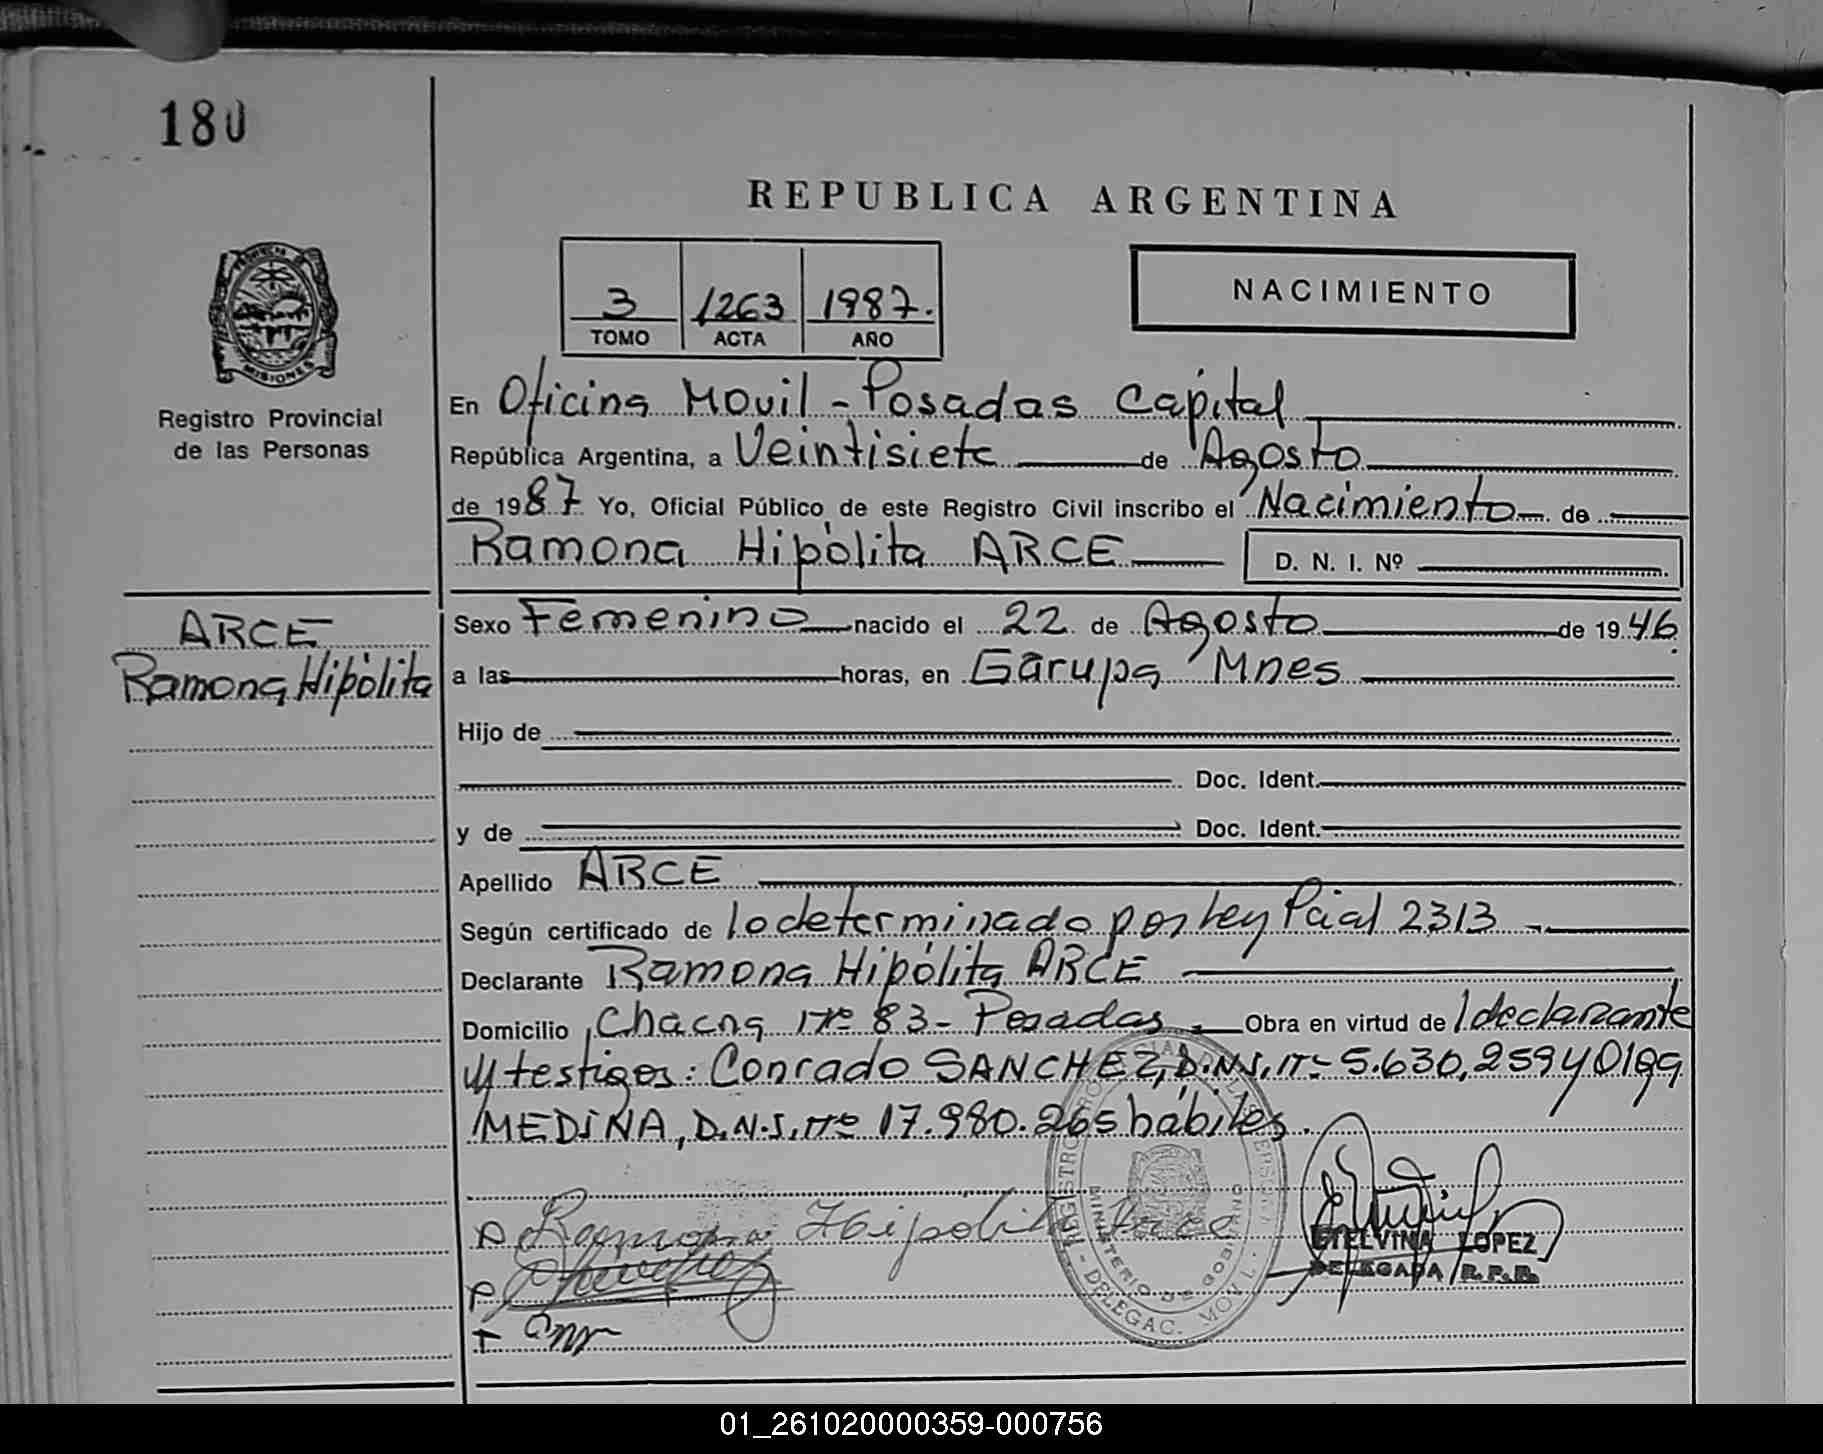 180
REPUBLICA ARGENTINA
NACIMIENTO
3 1263 1987.
TOMO ACTA AÑO
MISIONES
Registro Provincial
de las Personas
En Oficina Movil - Posadas Capital
República Argentina, a Veintisiete de Agosto
de 1987 Yo, Oficial Público de este Registro Civil inscribo el Nacimiento de
Ramona Hipólita ARCE D. N. I. Nº
ARCE
Ramona Hipólita
Sexo Femenino nacido el 22 de Agosto de 1946
a las horas, en Garupa Mnes
Hijo de
Doc. Ident.
y de Doc. Ident.
Apellido ARCE
Según certificado de lo determinado por Ley Pcial 2313
Declarante Ramona Hipólita ARCE
Domicilio Chacra Nº 83 - Posadas Obra en virtud de l declarante
y testigos: Conrado SANCHEZ, D.N.I. Nº 5.630.259 y Olga
MEDINA, D.N.I. Nº 17.980.265 hábiles.
Ramona Hipolita Arce
MINISTERIO DE GOBIERNO
DELEGAC. MOVIL
ETELVINA LOPEZ
DELEGADA R.P.P.
01_261020000359-000756